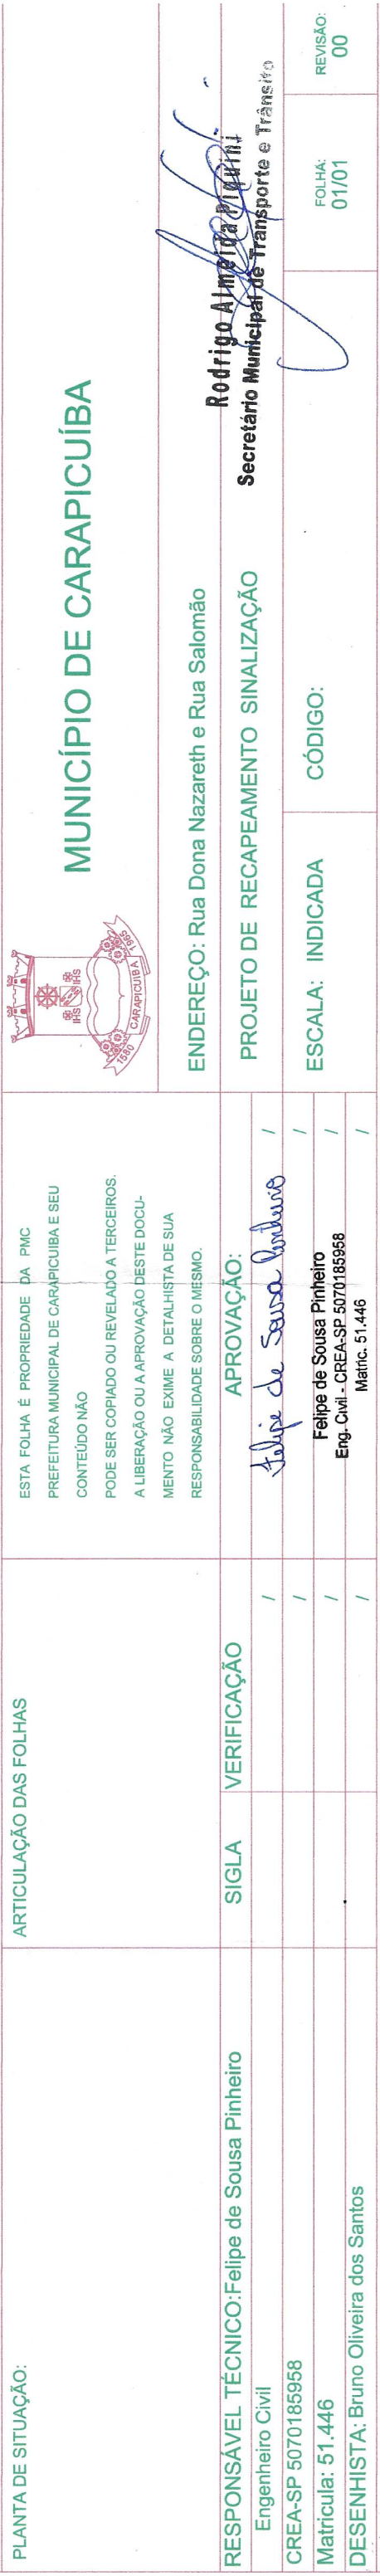 PLANTA DE SITUAÇÃO:
ARTICULAÇÃO DAS FOLHAS
ESTA FOLHA É PROPRIEDADE DA PMC
PREFEITURA MUNICIPAL DE CARAPICUIBA E SEU
CONTEÚDO NÃO
PODE SER COPIADO OU REVELADO A TERCEIROS.
A LIBERAÇÃO OU A APROVAÇÃO DESTE DOCU-
MENTO NÃO EXIME A DETALHISTA DE SUA
RESPONSABILIDADE SOBRE O MESMO.
IHS IHS
1580 CARAPICUIBA 1965
MUNICÍPIO DE CARAPICUÍBA
ENDEREÇO: Rua Dona Nazareth e Rua Salomão
PROJETO DE RECAPEAMENTO SINALIZAÇÃO
Rodrigo Almeida Piquini
Secretário Municipal de Transporte e Trânsito
ESCALA: INDICADA
CÓDIGO:
FOLHA:
01/01
REVISÃO:
00
RESPONSÁVEL TÉCNICO:Felipe de Sousa Pinheiro
Engenheiro Civil
CREA-SP 5070185958
Matricula: 51.446
DESENHISTA: Bruno Oliveira dos Santos
SIGLA
VERIFICAÇÃO
/
/
/
/
APROVAÇÃO:
Felipe de Sousa Pinheiro /
/
Felipe de Sousa Pinheiro /
Eng. Civil - CREA-SP 5070185958
Matric. 51.446 /